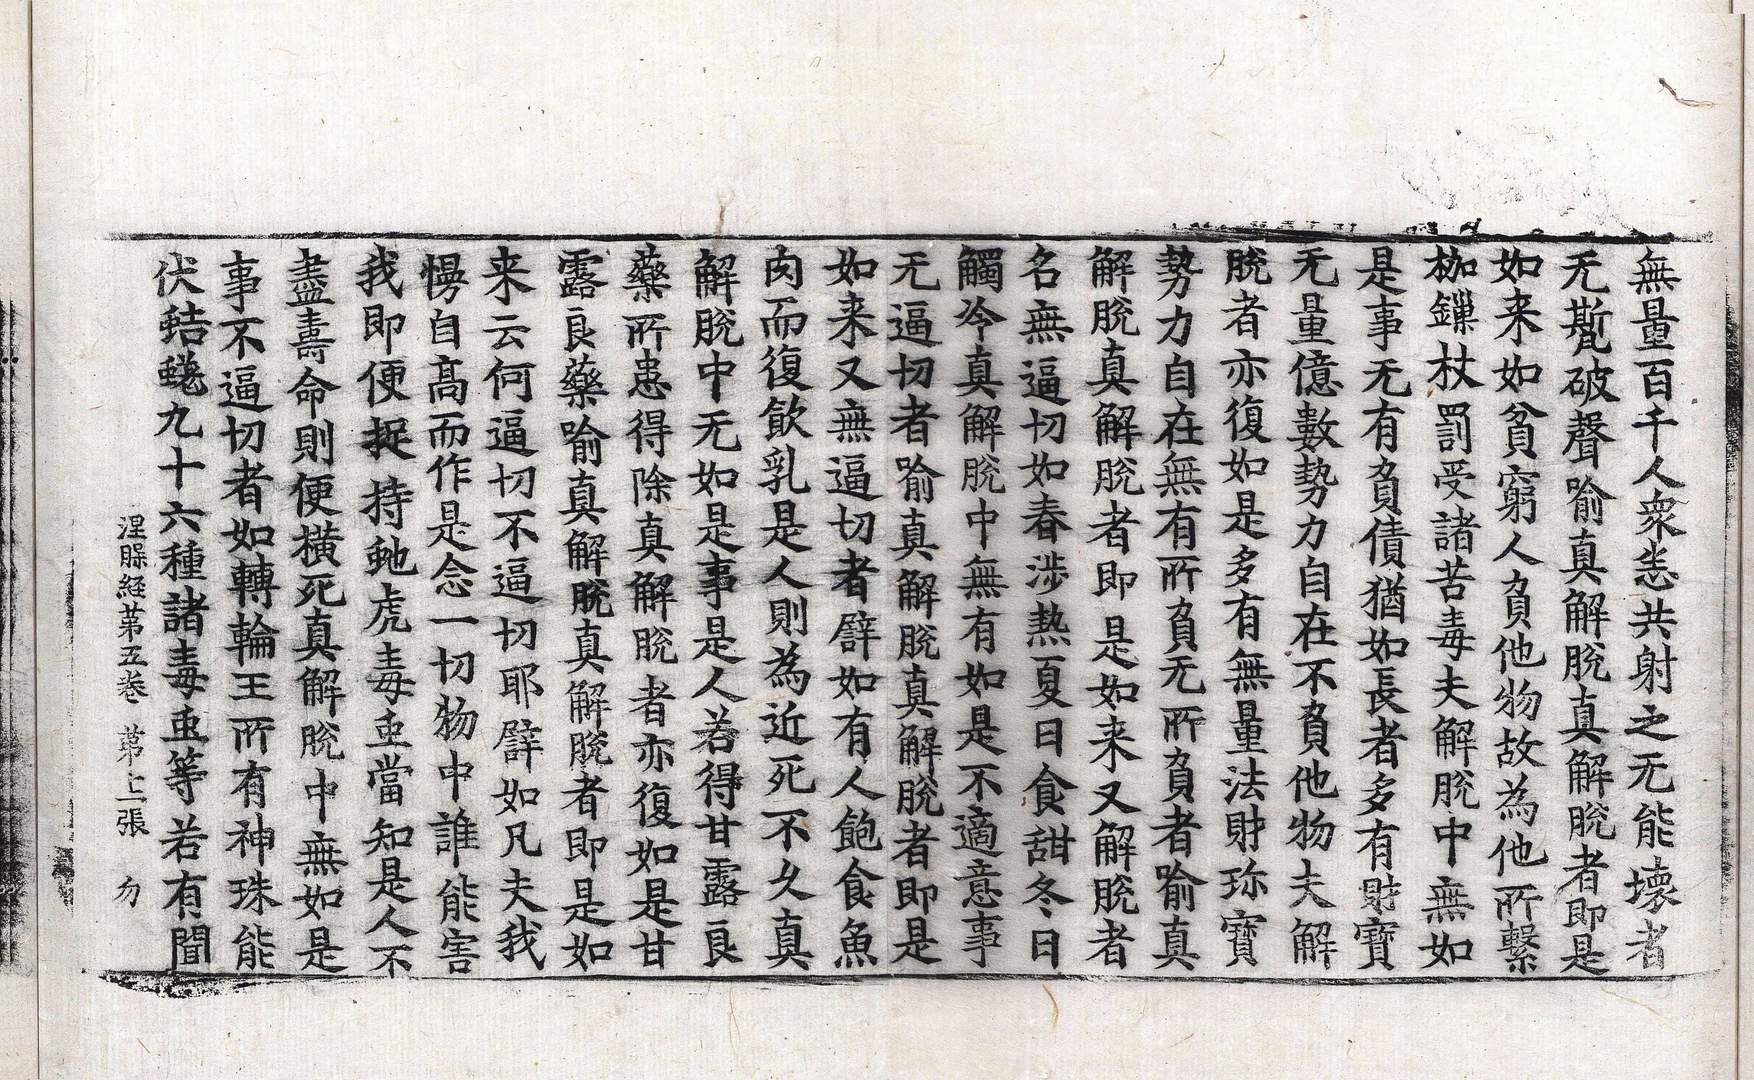 無量百千人衆悉共射之无能壞者
无斯㽄破聲喻真解脫真解脫者即是
如来如貧窮人負他物故為他所繫
枷鏁杖罰受諸苦毒夫解脫中無如
是事无有負債猶如長者多有財寶
无量億數勢力自在不負他物夫解
脫者亦復如是多有無量法財珎寶
勢力自在無有所負无所負者喻真
解脫真解脫者即是如来又解脫者
名無逼切如春涉熱夏日食甜冬日
觸冷真解脫中無有如是不適意事
无逼切者喻真解脫真解脫者即是
如来又無逼切者譬如有人飽食魚
肉而復飲乳是人則為近死不久真
解脫中无如是事是人若得甘露良
藥所患得除真解脫者亦復如是甘
露良藥喻真解脫真解脫者即是如
来云何逼切不逼切耶譬如凡夫我
慢自高而作是念一切物中誰能害
我即便捉持虵虎毒䖝當知是人不
盡壽命則便橫死真解脫中無如是
事不逼切者如轉輪王所有神珠能
伏蛣蜣九十六種諸毒䖝等若有聞
涅槃経苐五巻 苐七張 勿